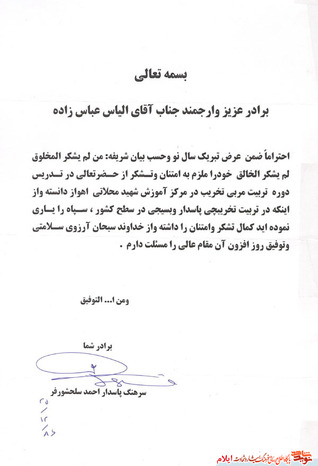 بسمه تعالی
برادر عزیز وارجمند جناب آقای الیاس عباس زاده
احتراماً ضمن عرض تبریک سال نو وحسب بیان شریفه: من لم یشکر المخلوق
لم یشکر الخالق خودرا ملزم به امتنان وتشکر از حضرتعالی در تدریس
دوره تربیت مربی تخریب در مرکز آموزش شهید محلاتی اهواز دانسته واز
اینکه در تربیت تخریبچی پاسدار وبسیجی در سطح کشور ، سپاه را یاری
نموده اید کمال تشکر وامتنان را داشته واز خداوند سبحان آرزوی سلامتی
وتوفیق روز افزون آن مقام عالی را مسئلت دارم .
ومن ا... التوفیق
برادر شما
سرهنک پاسدار احمد سلحشورفر
۲۵
۱۲
۸۶
ایلام